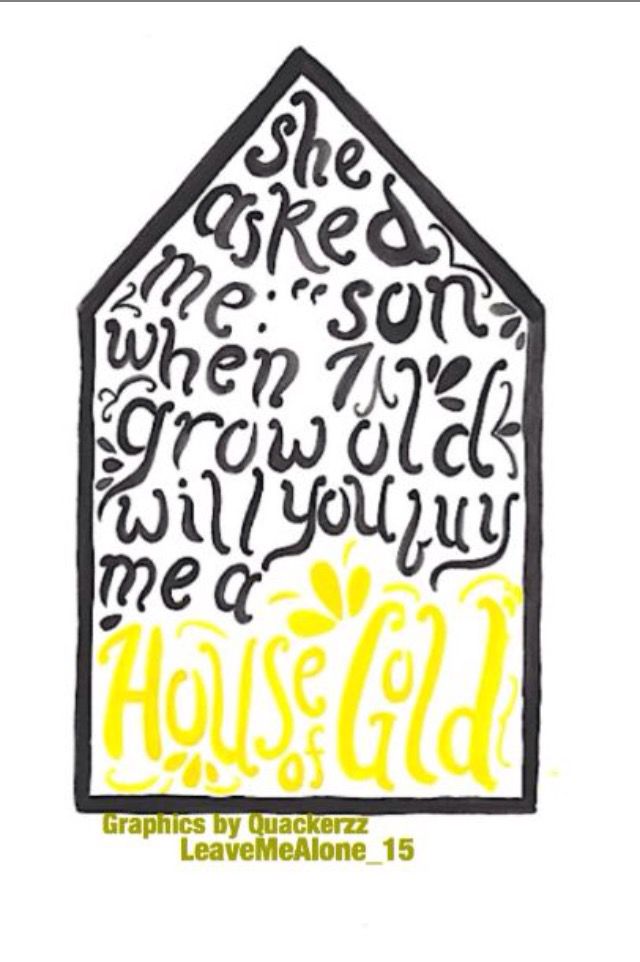 she
asked
me: “son
when I
grow old
will you buy
me a
House of Gold
Graphics by Quackerzz
LeaveMeAlone_15